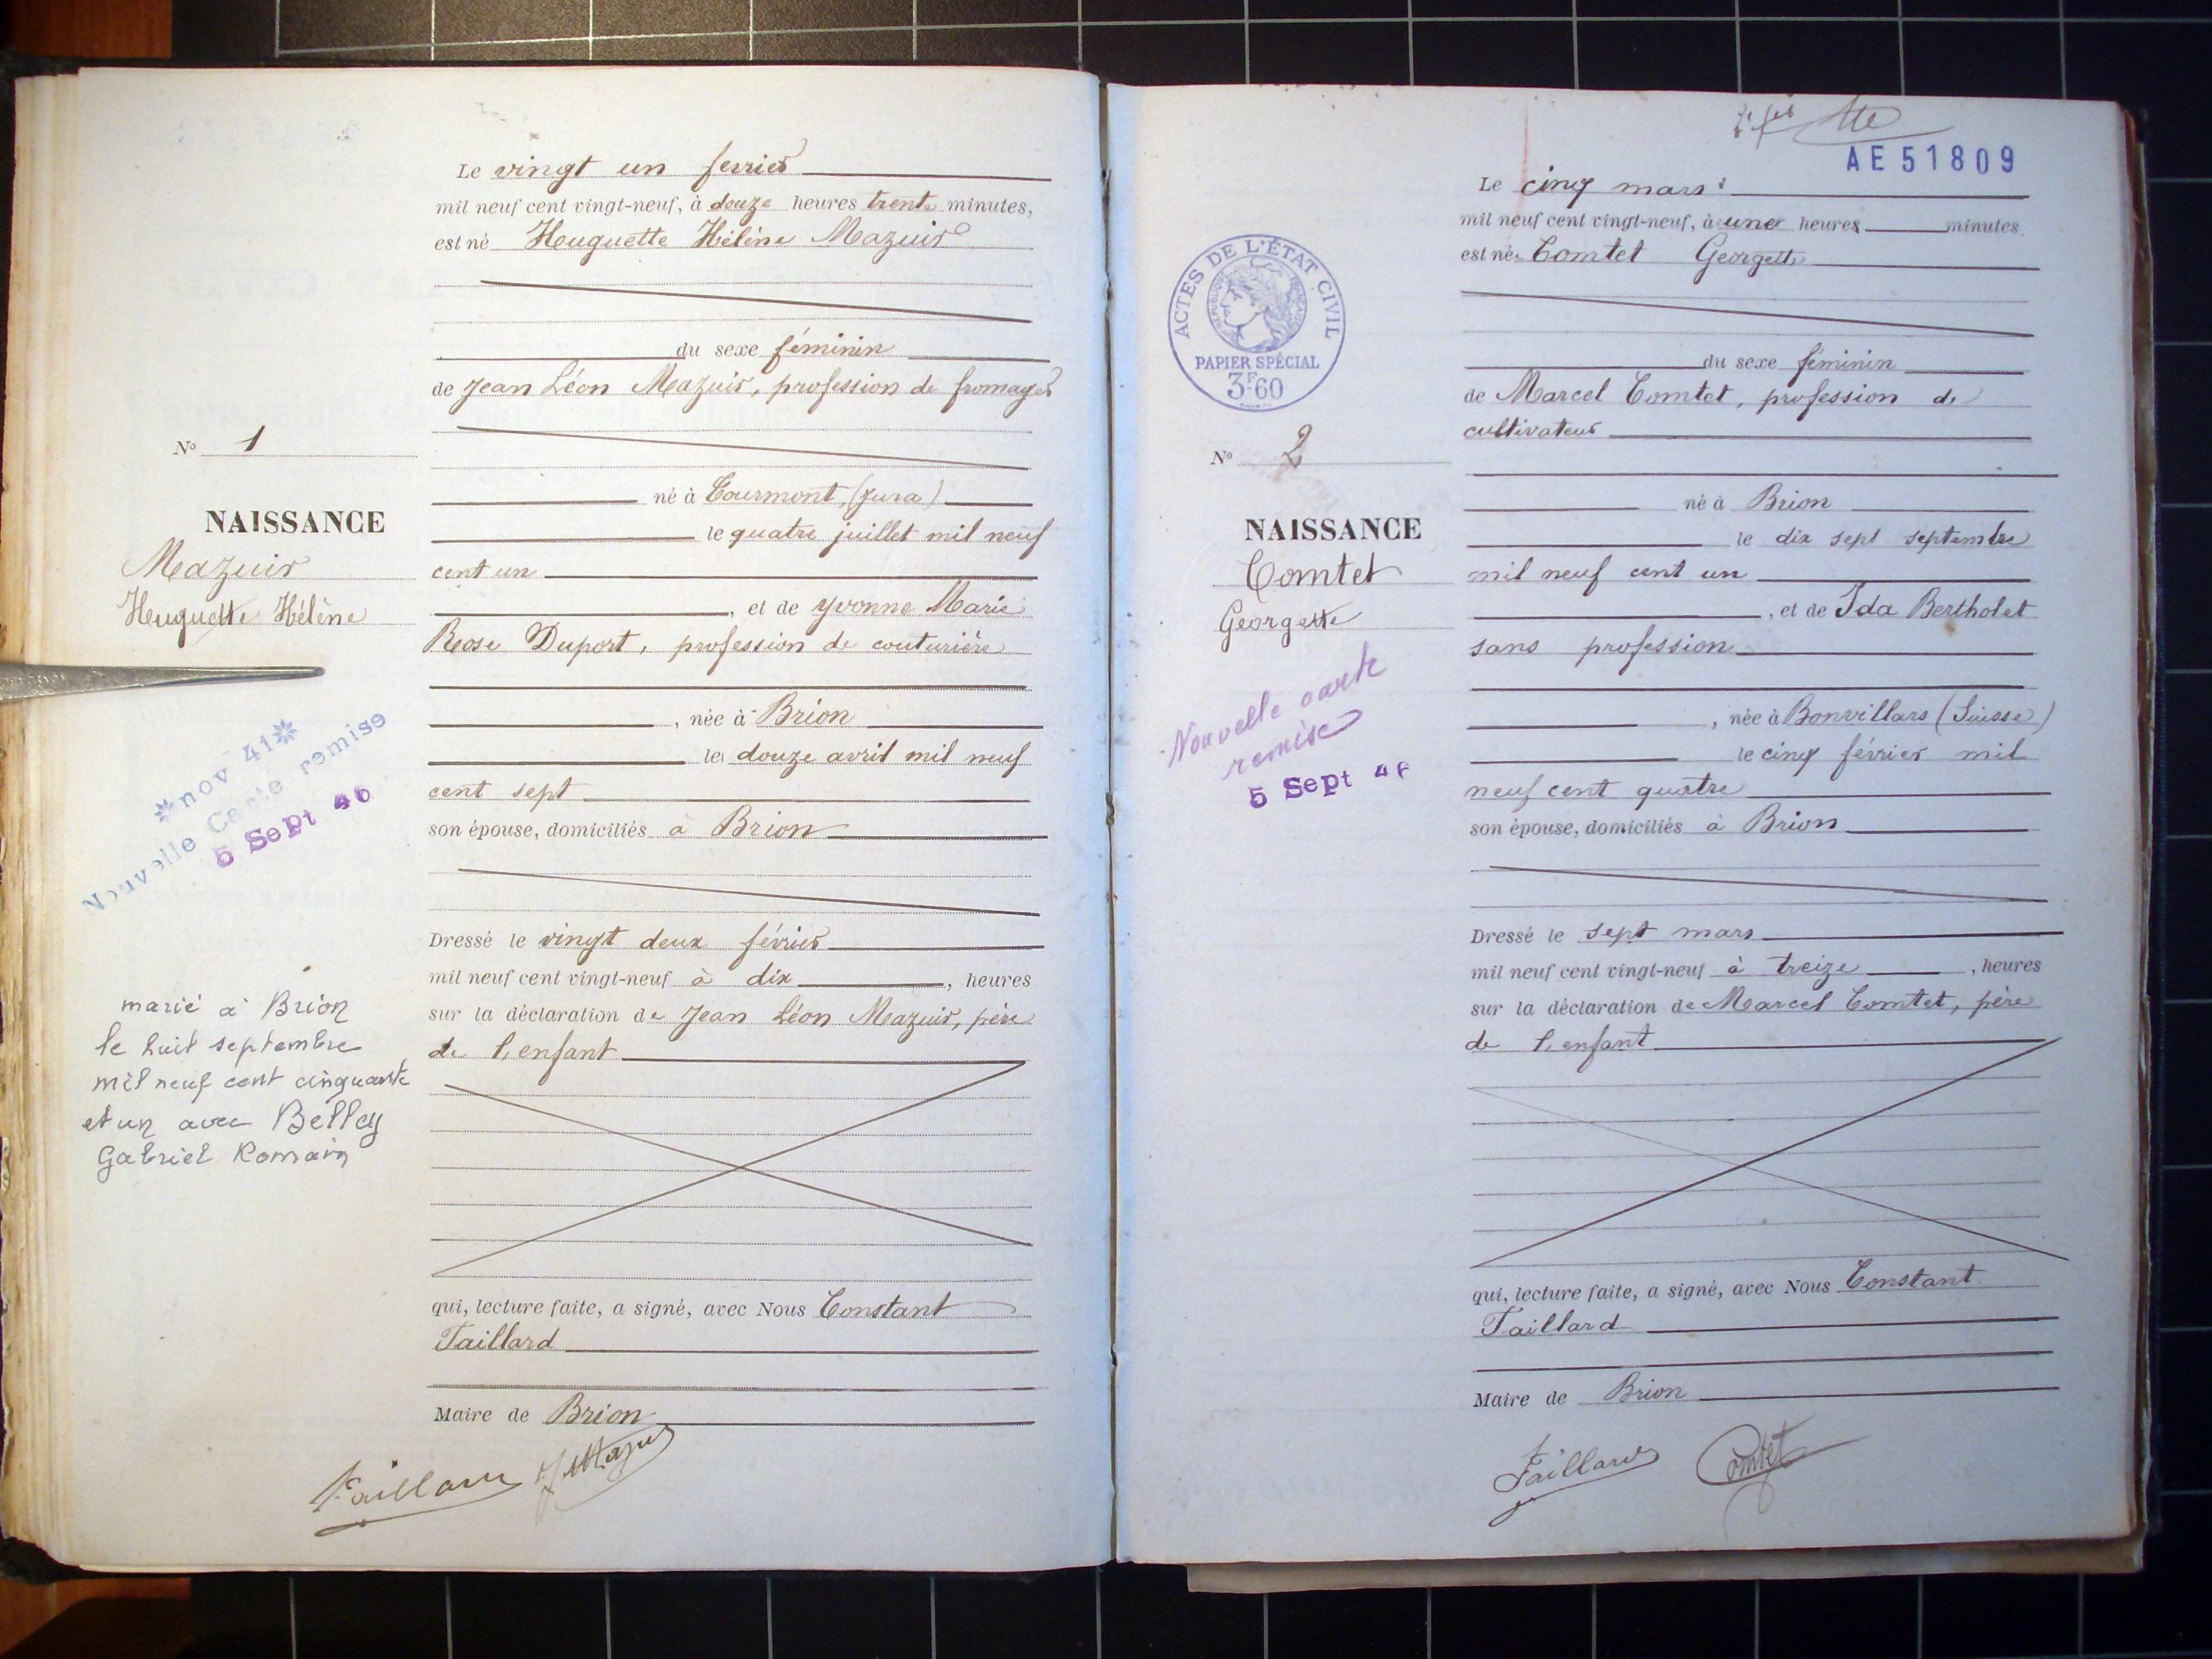 Le vingt un ferrier
mil neuf cent vingt-neuf, à douze heures trente minutes,
est né Huguette Hélène Mazuir
du sexe féminin
de Jean Léon Mazuir, profession de fromager
N° 1
né à Tourmont, (Jura)
NAISSANCE
le quatre juillet mil neuf
Mazuir
cent un
Huguette Hélène
, et de Yvonne Marie
Rose Duport, profession de couturière
, née à Brion
*nov 41*
Nouvelle Carte remise
5 Sept 46
le douze avril mil neuf
cent sept
son épouse, domiciliés à Brion
Dressé le vingt deux février
mil neuf cent vingt-neuf à dix , heures
sur la déclaration de Jean Léon Mazuir, père
de l'enfant
marié à Brion
le huit septembre
mil neuf cent cinquante
et un avec Belley
Gabriel Romain
qui, lecture faite, a signé, avec Nous Constant
Taillard
Maire de Brion
Taillard
AE 51809
Le cinq mars
mil neuf cent vingt-neuf, à une heures minutes
est née Comtet Georgette
ACTES DE L'ÉTAT CIVIL
RÉPUBLIQUE FRANÇAISE
PAPIER SPÉCIAL
3F60
du sexe féminin
de Marcel Comtet, profession de
cultivateur
N° 2
né à Brion
NAISSANCE
le dix sept septembre
Comtet
mil neuf cent un
Georgette
, et de Ida Bertholet
sans profession
Nouvelle carte
remise
5 Sept 46
, née à Bonvillars (Suisse)
le cinq février mil
neuf cent quatre
son épouse, domiciliés à Brion
Dressé le sept mars
mil neuf cent vingt-neuf à treize , heures
sur la déclaration de Marcel Comtet, père
de l'enfant
qui, lecture faite, a signé, avec Nous Constant
Taillard
Maire de Brion
Taillard Comtet